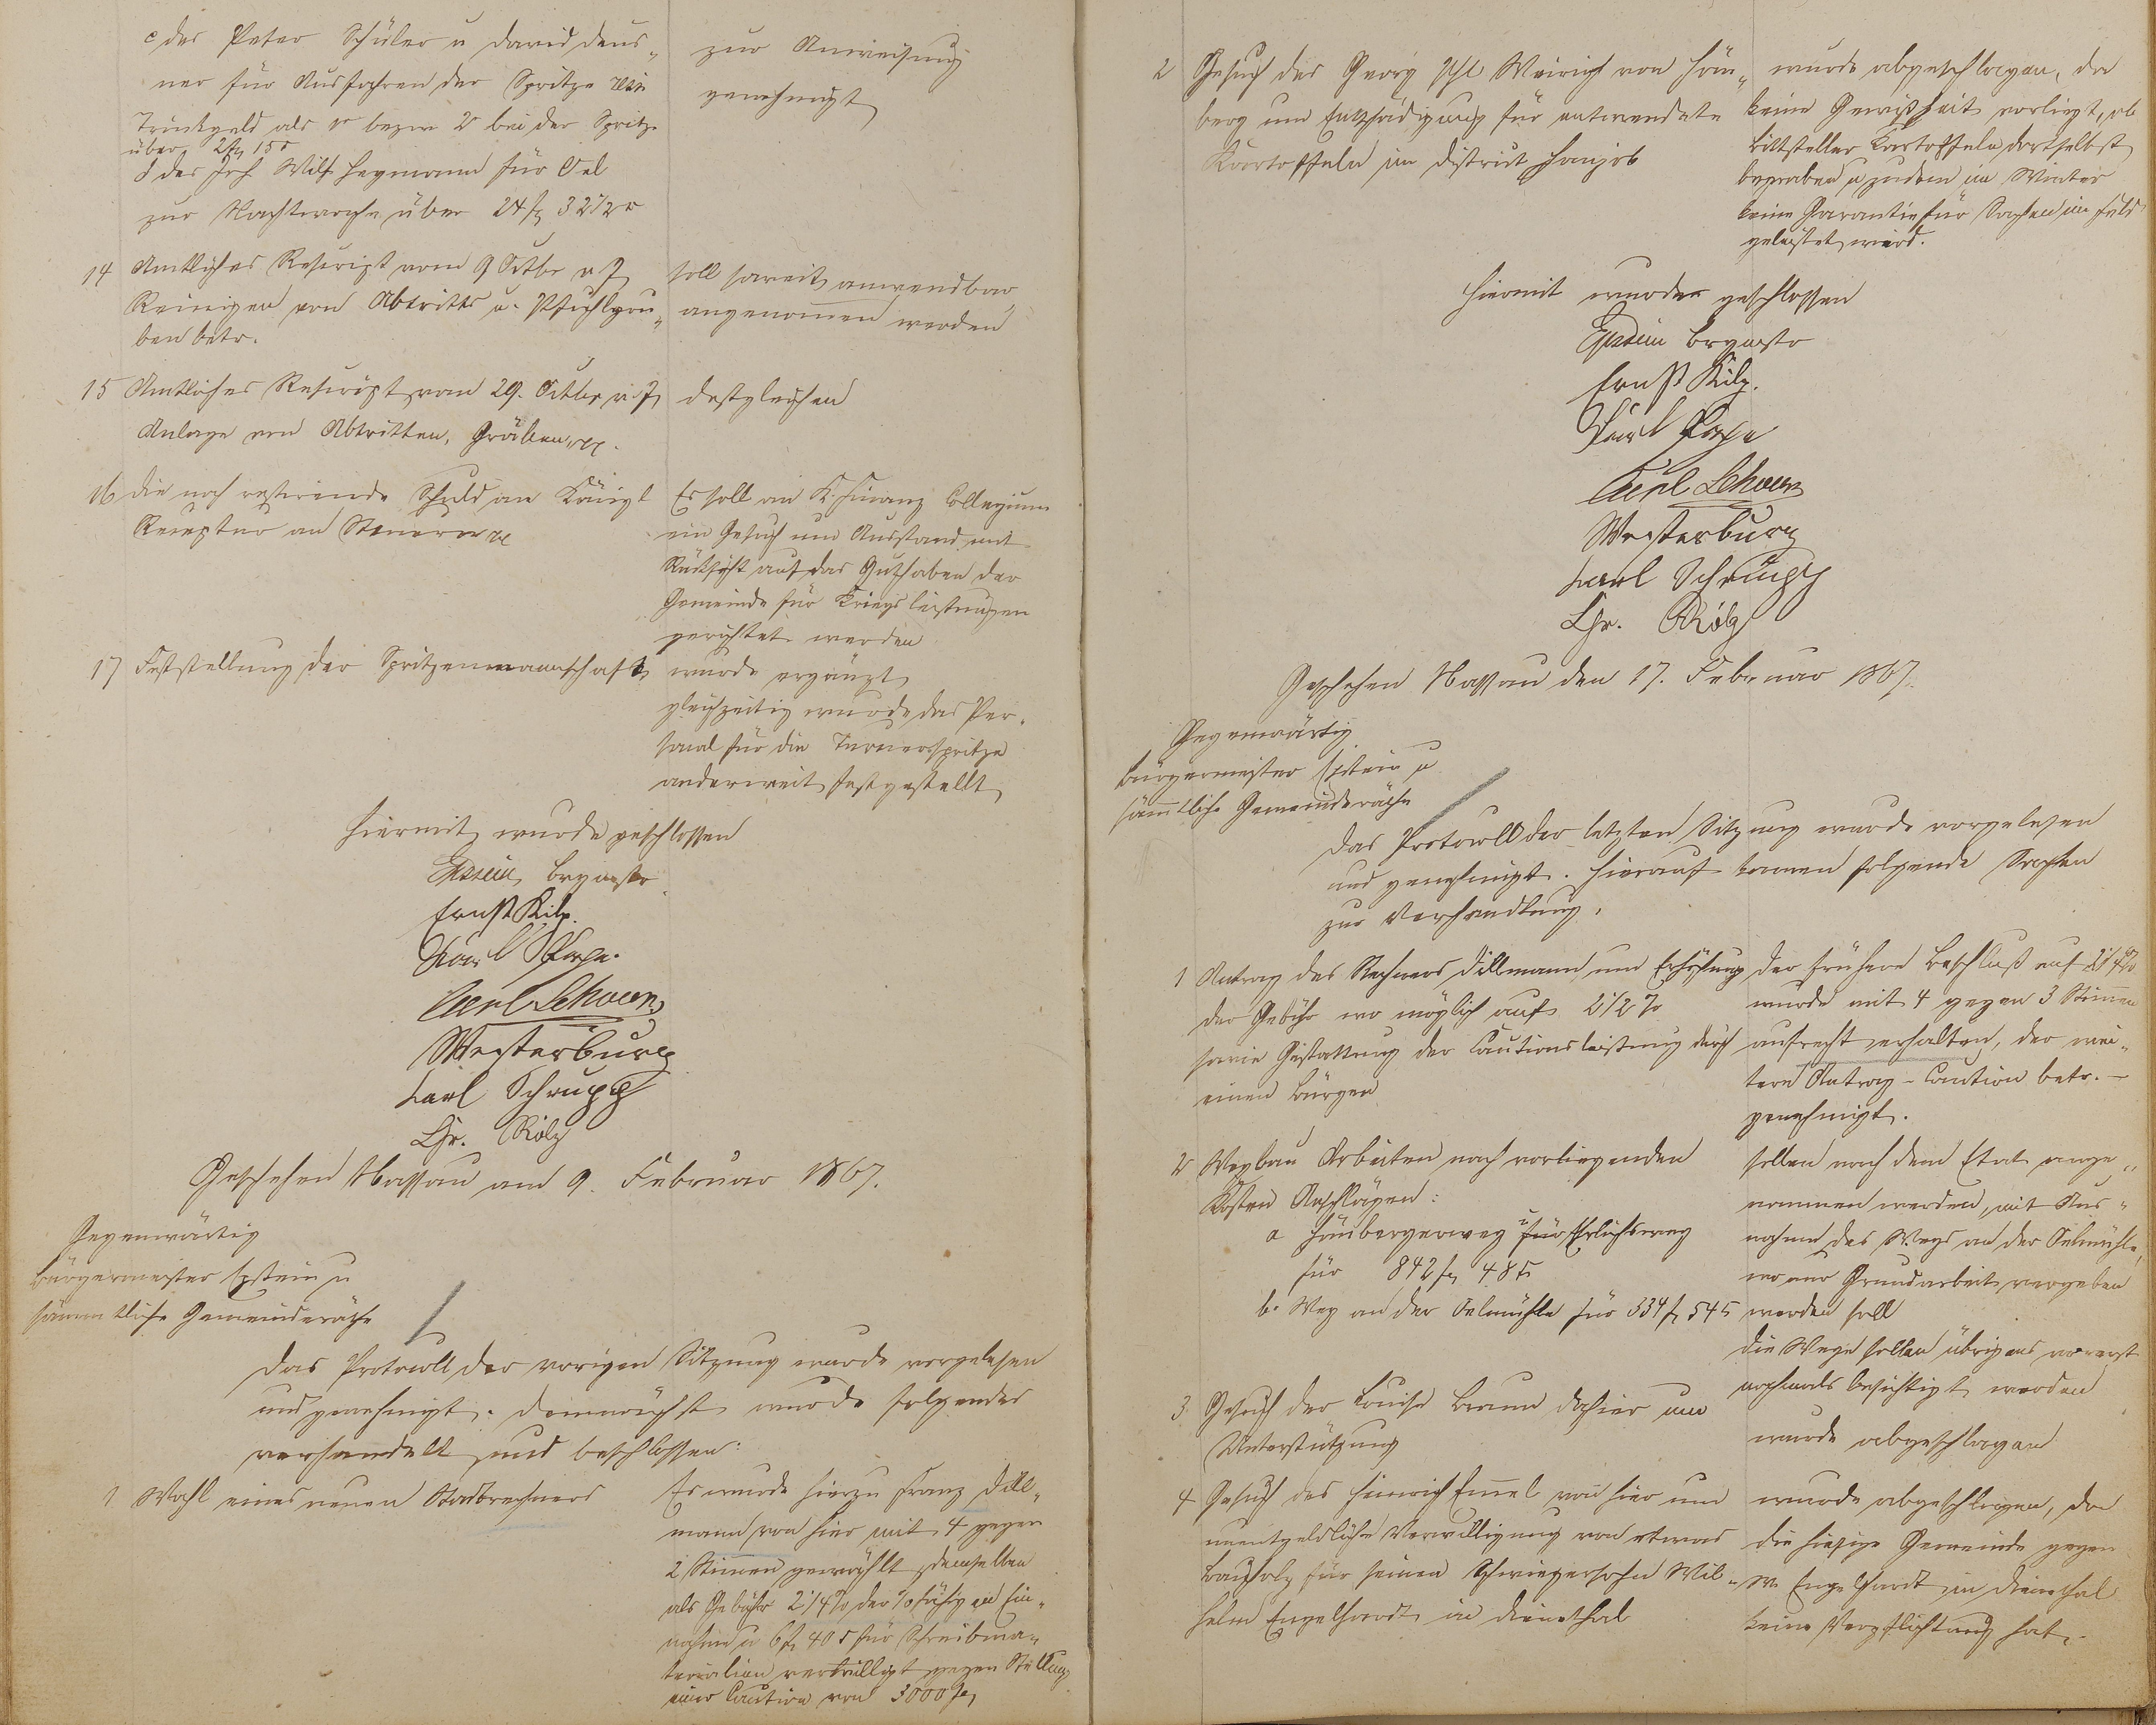 c des Peter Schüler u David Deus-
ner für Ausfahren der Spritze
Trinkgeld als 1r bezw 2r bei der Spritze
über 2 f 15 x
d des Joh. Wilh Heymann für Oel
zur Nachtwache über 24 f 32 1/2 x
zur Anweisung
genehmigt
14 Amtliches Rescript vom 9 Octbr v J
Reinigen von Abtritts u. Pfuhlgru-
ben betr.
soll soweit anwendbar
angenommen werden
15 Amtliches Rescript vom 29. Octbr v J
Anlage von Abtritten, Gräben, pp.
desgleichen
16 Die noch restirende Schuld an Königl
Receptur an Steuern pp
Es soll an K. Finanz Collegium
ein Gesuch um Ausstand mit
Rücksicht auf das Guthaben der
Gemeinde für Kriegsleistungen
gerichtet werden
17 Feststellung der Spritzenmannschaft
wurde ergänzt
gleichzeitig wurde das Per-
sonal für die Turnerspritze
anderweit festgestellt
Hiermit wurde geschlossen
Epstein Brgmstr
Ernst Kilp.
Karl Pape.
Carl Schoen
Westerburg
Karl Schrupp
Chr. Rölz
Geschehen Nassau am 9. Februar 1867.
Gegenwärtig
Bürgermeister Epstein u
sämmtliche Gemeinderäthe
Das Protocoll der vorigen Sitzung wurde vorgelesen
und genehmigt. Demnächst wurde folgendes
verhandelt und beschlossen:
1 Wahl eines neuen Stadtrechners
Es wurde hierzu Franz Dill-
mann von hier mit 4 gegen
2 Stimmen gewählt, demselben
als Gebühr 2 1/4 % der %fähigen Ein-
nahme u 6 f 40 x für Schreibma-
terialien verwilligt gegen Stellung
einer Caution von 3000 f
2 Gesuch des Georg Phl Weirich von Höm-
berg um Entschädigung für entwendete
Kartoffeln im District Hanjob
wurde abgeschlagen, da
keine Gewißheit vorliegt, ob
Bittsteller Kartoffeln dortselbst
begraben u zudem im Winter
keine Garantie für Sachen im Feld
geleistet wird.
Hiermit wurde geschlossen
Epstein Brgmstr
Ernst Kilp.
Karl Pape
Carl Schoen
Westerburg
Karl Schrupp
Chr. Rölz
Geschehen Nassau den 17. Februar 1867.
Gegenwärtig
Bürgermeister Epstein u
sämmtliche Gemeinderäthe
Das Protocoll der letzten Sitzung wurde vorgelesen
und genehmigt. Hierauf kamen folgende Sachen
zur Verhandlung.
1 Antrag des Rechners Dillmann um Erhöhung
der Gebühr wo möglich auf 2 1/2 %
sowie Gestattung der Cautionsleistung durch
einen Bürgen
der frühere Beschluß auf 2 1/4 %
wurde mit 4 gegen 3 Stimmen
aufrecht erhalten, der wei-
tere Antrag - Caution betr. -
genehmigt.
2 Wegbau Arbeiten nach vorliegenden
Kosten Anschlägen:
a Hömbergerweg u Ehrlichsweg
für 842 f 48 x
b. Weg an der Oelmühle für 334 f 54 x
sollen nach dem Etat ange-
nommen werden, mit Aus-
nahme des Wegs an der Oelmühle,
wo nur Grundarbeit vergeben
werden soll
Die Wege sollen übrigens vorerst
nochmals besichtigt werden
3. Gesuch der Louise Braun dahier um
Unterstützung
wurde abgeschlagen
4 Gesuch des Heinrich Emel von hier um
unentgeldliche Verwilligung von etwas
Bauholz für seinen Schwiegersohn Wil-
helm Engelhardt in Dienethal
wurde abgeschlagen, da
die hiesige Gemeinde gegen
W. Engelhardt in Dienethal
keine Verpflichtung hat.